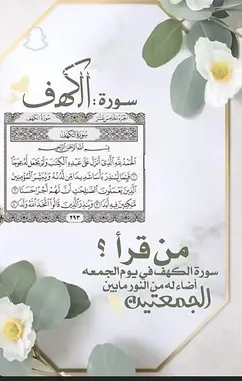 سورة: الكهف
سورة الكهف
سورة الكهف
بسم الله الرحمن الرحيم
الحمد لله الذي أنزل على عبده الكتب ولم يجعل له عوجا
قيما لينذر بأسا شديدا من لدنه ويبشر المؤمنين
الذين يعملون الصلحت أن لهم أجرا حسنا
مكثين فيه أبدا وينذر الذين قالوا اتخذ الله ولدا
٢٩٣
من قرأ ؟
سورة الكهف في يوم الجمعه
أضاء له من النور مابين
الجمعتين